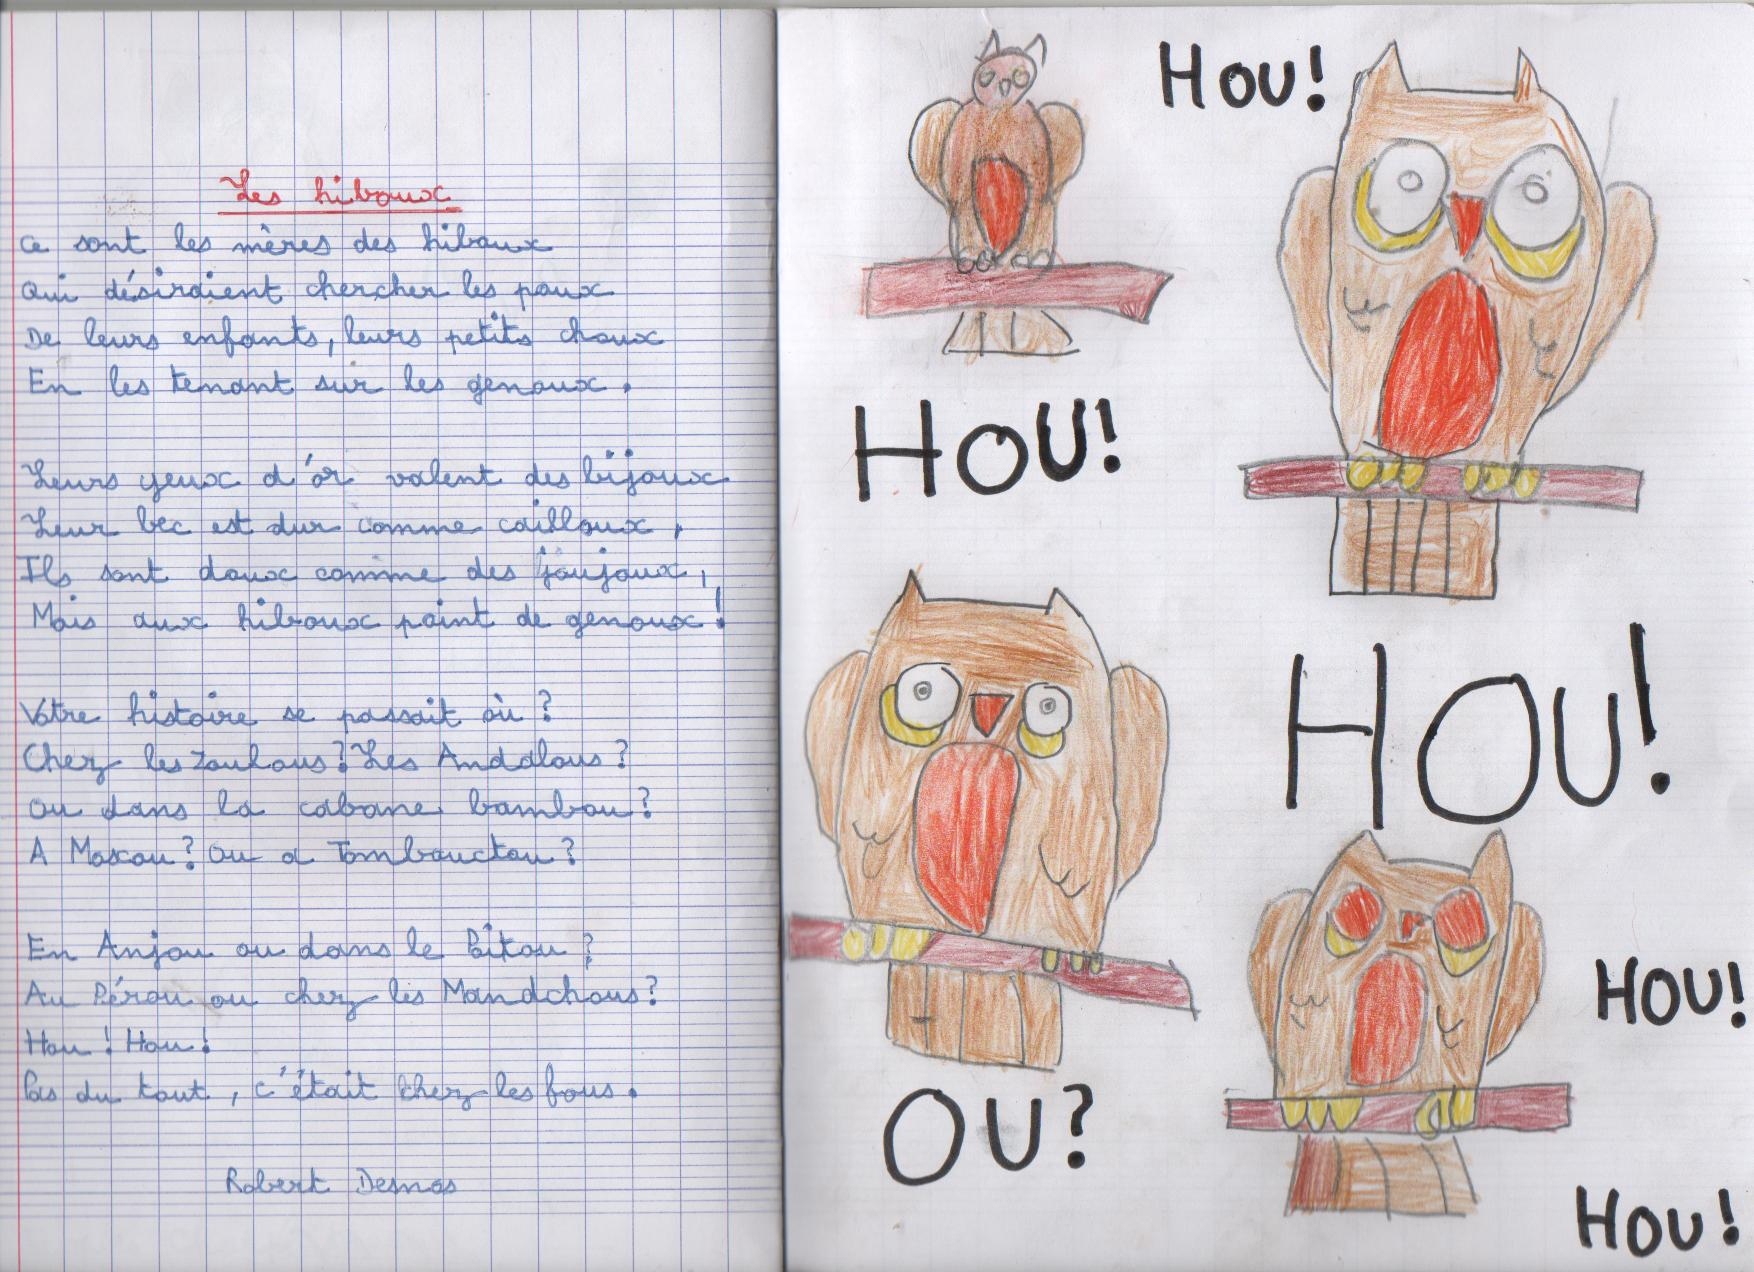 Les hiboux
Ce sont les mères des hiboux
Qui désiraient chercher les poux
De leurs enfants, leurs petits choux
En les tenant sur les genoux.
Leurs yeux d'or valent des bijoux
Leur bec est dur comme cailloux,
Ils sont doux comme des joujoux,
Mais aux hiboux point de genoux !
Votre histoire se passait où ?
Chez les Zoulous ? Les Andalous ?
Ou dans la cabane bambou ?
A Moscou ? Ou à Tombouctou ?
En Anjou ou dans le Poitou ?
Au Pérou ou chez les Mandchous ?
Hou ! Hou !
Pas du tout, c'était chez les fous.
Robert Desnos
HOU!
HOU!
HOU!
HOU!
OU?
HOU!